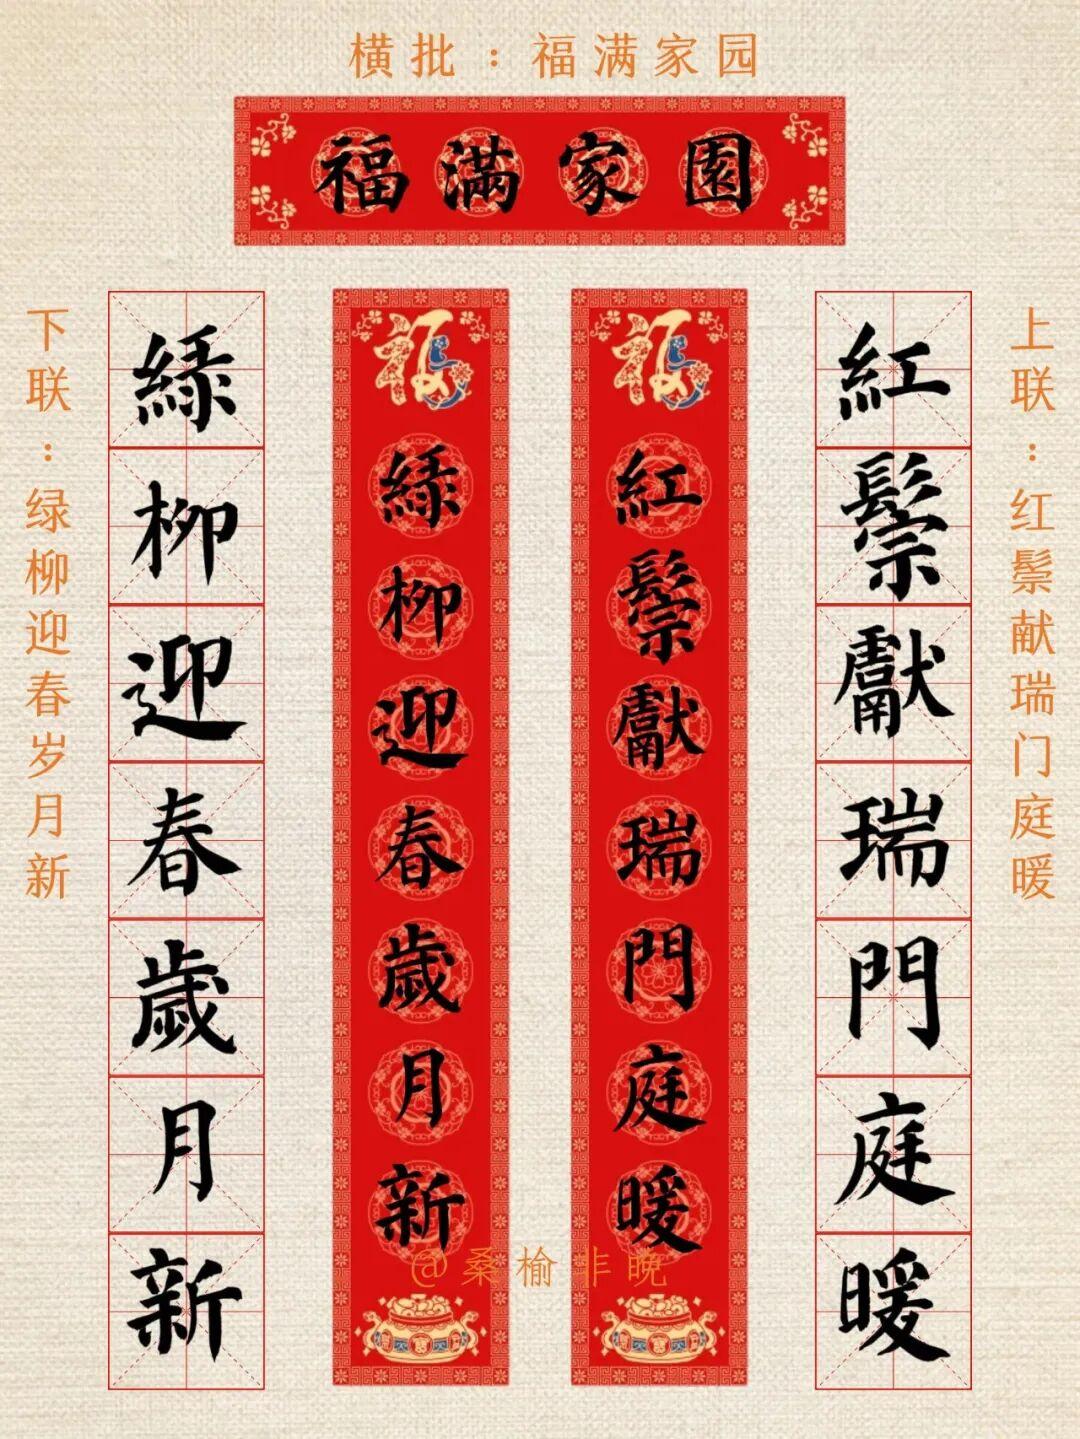 横批：福满家园
福滿家園
上联：红鬃献瑞门庭暖
紅鬃獻瑞門庭暖
福紅鬃獻瑞門庭暖
福綠柳迎春歲月新
綠柳迎春歲月新
下联：绿柳迎春岁月新
@桑榆非晚